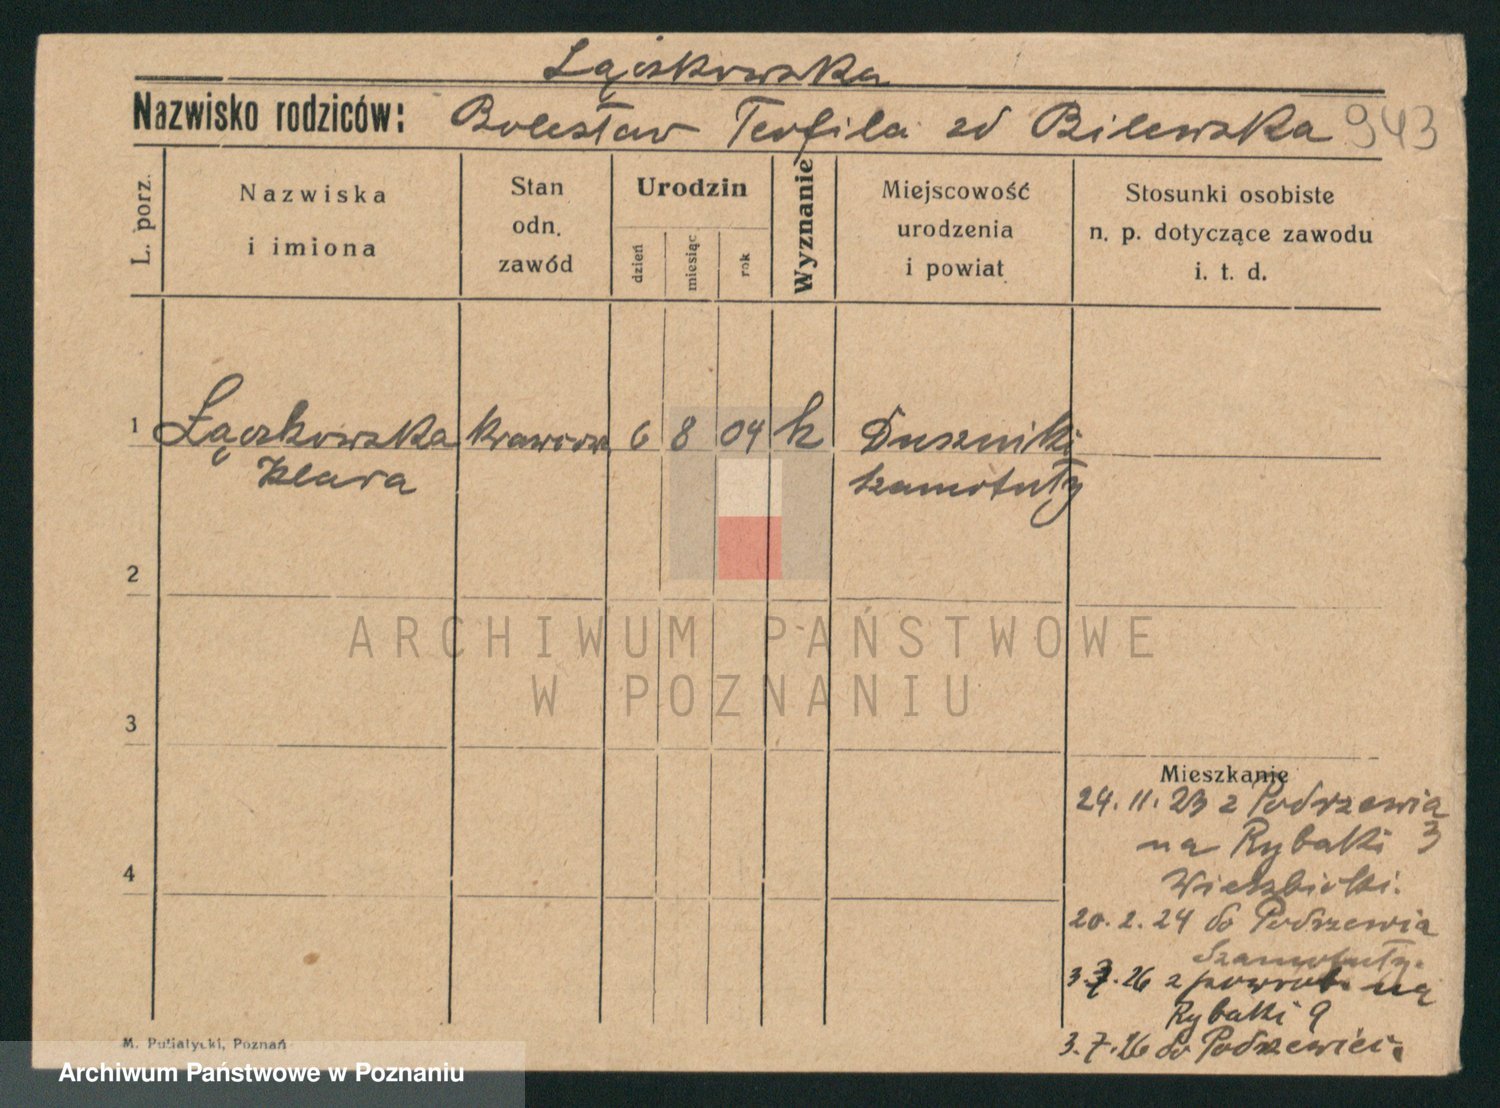 Łączkowska
Nazwisko rodziców: Bolesław Teofila zd Bilewska 943
L. porz.
Nazwiska
i imiona
Stan
odn.
zawód
Urodzin
dzień
miesiąc
rok
Wyznanie
Miejscowość
urodzenia
i powiat
Stosunki osobiste
n. p. dotyczące zawodu
i. t. d.
1 Łączkowska krawcowa 6 8 04 k Duszniki
Klara Szamotuły
2
3
4
Mieszkanie
24.11.23 z Podrzewia
na Rybaki 3
20.2.24 do Podrzewia
Szamotuły.
3.7.26 z powrot. na
Rybaki 9
3.7.26 do Podrzewie
M. Putiatycki, Poznań
ARCHIWUM PAŃSTWOWE
W POZNANIU
Archiwum Państwowe w Poznaniu